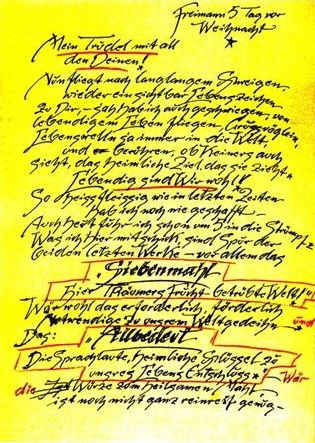 Freimann 5 Tag vor
Weihnacht
Mein Trudel mit all
den Deinen!
Nun fliegt nach langlangem Schweigen,
wieder ein sichtbar Lebenszeichen
zu Dir, – sah hab ich auch geschwiegen, von
lebendigem Leben fliegen
Lebenswelln ja immer in die Welt
und berühren, ob Keiners auch
sieht, das heimliche Ziel, das sie zieht
Lebendig sind Wir wohl!
So heissfleissig wie in letzten Zeiten
hab ich noch nie geschafft –
Auch heut führ ich schon um 5 in die Strümpf
Was ich hier mitschick, sind Spur der
beiden letzten Werke – vor allem das
"Siebenmahl
Hier Träumers Frücht betrübte Welt!"
Wär wohl das erforderlich, förderlich
Notwendige zu unsrem Weltgedeihn und
Das: "Allbedeut
Die Sprachlaute, heimliche Schlüssel zu
unsres Lebens Entschlöss Wär
die Würze zum heilsamen Mahl
ist noch nicht ganz reinreif genug –